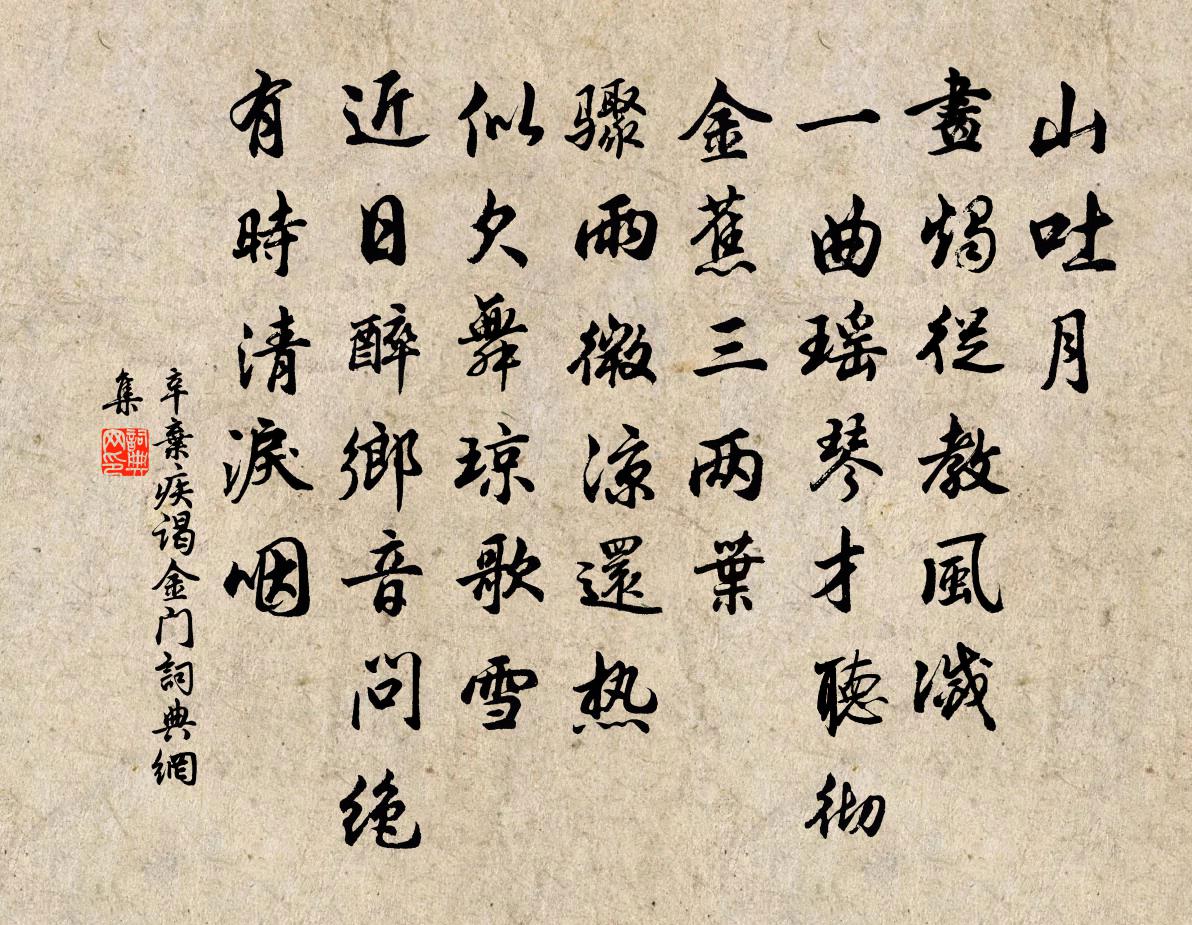 山吐月
畫燭從教風滅
一曲瑶琴才聽徹
金蕉三两葉
驟雨微涼還热
似欠舞琼歌雪
近日醉鄉音問絶
有時清淚咽
辛棄疾谒金门詞典網
集
詞典
网印